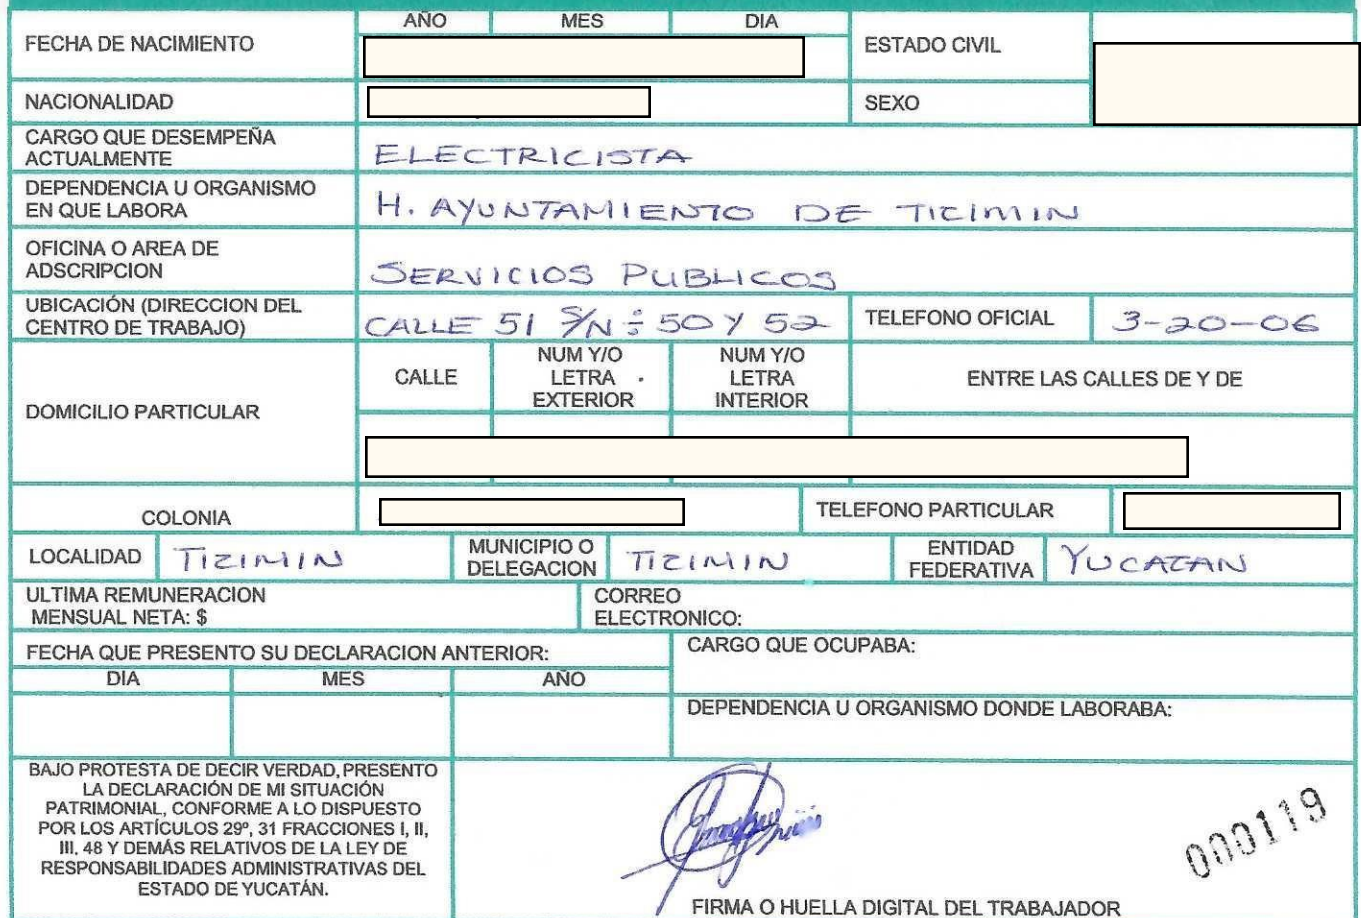 AÑO MES DIA
FECHA DE NACIMIENTO
ESTADO CIVIL
NACIONALIDAD
SEXO
CARGO QUE DESEMPEÑA
ACTUALMENTE
ELECTRICISTA
DEPENDENCIA U ORGANISMO
EN QUE LABORA
H. AYUNTAMIENTO DE TIZIMIN
OFICINA O AREA DE
ADSCRIPCION
SERVICIOS PUBLICOS
UBICACIÓN (DIRECCION DEL
CENTRO DE TRABAJO)
CALLE 51 S/N ÷ 50 Y 52
TELEFONO OFICIAL
3-20-06
DOMICILIO PARTICULAR
CALLE
NUM Y/O
LETRA
EXTERIOR
NUM Y/O
LETRA
INTERIOR
ENTRE LAS CALLES DE Y DE
COLONIA
TELEFONO PARTICULAR
LOCALIDAD
TIZIMIN
MUNICIPIO O
DELEGACION
TIZIMIN
ENTIDAD
FEDERATIVA
YUCATAN
ULTIMA REMUNERACION
MENSUAL NETA: $
CORREO
ELECTRONICO:
FECHA QUE PRESENTO SU DECLARACION ANTERIOR:
DIA MES AÑO
CARGO QUE OCUPABA:
DEPENDENCIA U ORGANISMO DONDE LABORABA:
BAJO PROTESTA DE DECIR VERDAD, PRESENTO
LA DECLARACIÓN DE MI SITUACIÓN
PATRIMONIAL, CONFORME A LO DISPUESTO
POR LOS ARTÍCULOS 29º, 31 FRACCIONES I, II,
III, 48 Y DEMÁS RELATIVOS DE LA LEY DE
RESPONSABILIDADES ADMINISTRATIVAS DEL
ESTADO DE YUCATÁN.
000119
FIRMA O HUELLA DIGITAL DEL TRABAJADOR